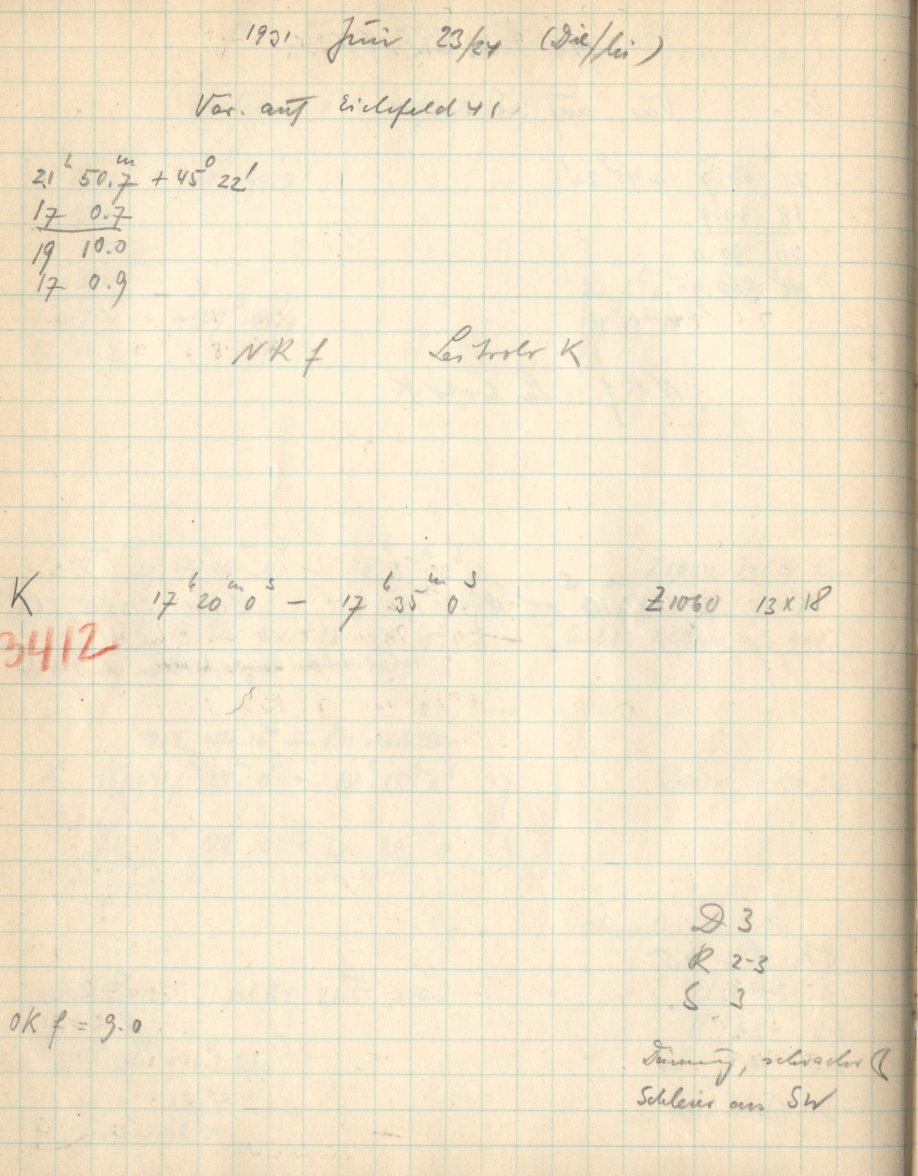 1931 Juni 23/24 (Die/Mi)
Var. auf Eichfeld 41
21ʰ 50.7ᵐ + 45° 22'
17 0.7
19 10.0
17 0.9
NR f Leitrohr K
K 17ʰ 20ᵐ 0ˢ – 17ʰ 35ᵐ 0ˢ Z1060 13x18
3412
D 3
R 2-3
S 3
OK f = 9.0
schwacher
Schleier aus SW